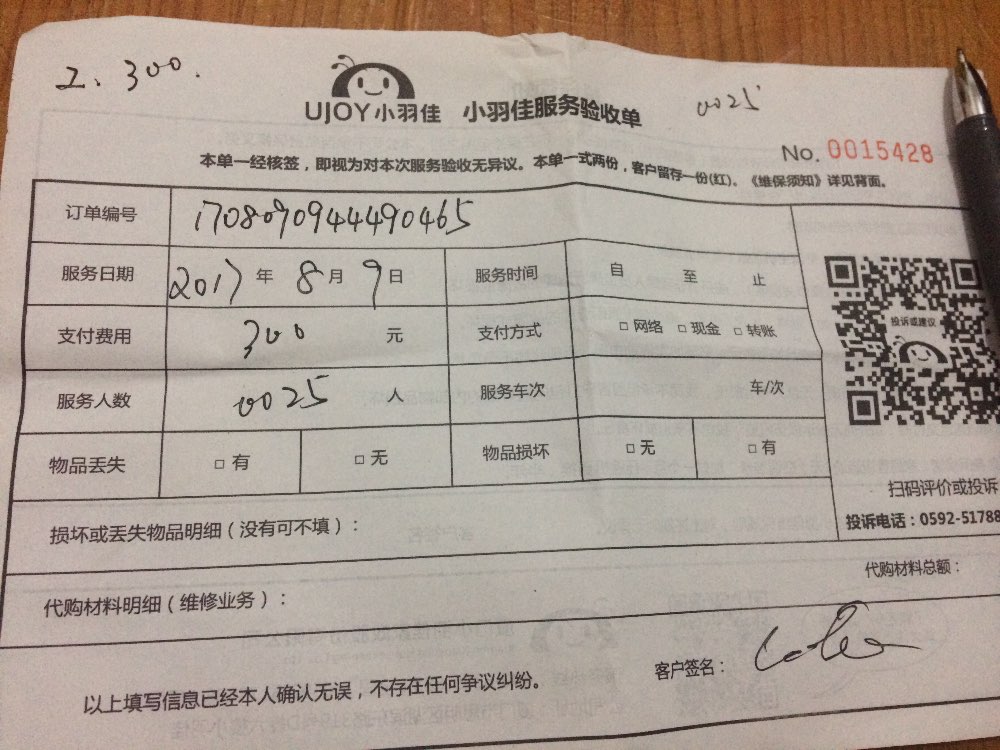 2. 300.
UJOY小羽佳 小羽佳服务验收单
0025
No. 0015428
本单一经核签，即视为对本次服务验收无异议。本单一式两份，客户留存一份(红)。《维保须知》详见背面。
订单编号 1708090944490465
服务日期 2017 年 8 月 9 日 服务时间 自 至 止
投诉或建议
支付费用 300 元 支付方式 □ 网络 □ 现金 □ 转账
服务人数 0025 人 服务车次 车/次
物品丢失 □ 有 □ 无 物品损坏 □ 无 □ 有
扫码评价或投诉
投诉电话：0592-51788
损坏或丢失物品明细（没有可不填）：
代购材料总额：
代购材料明细（维修业务）：
客户签名：
以上填写信息已经本人确认无误，不存在任何争议纠纷。